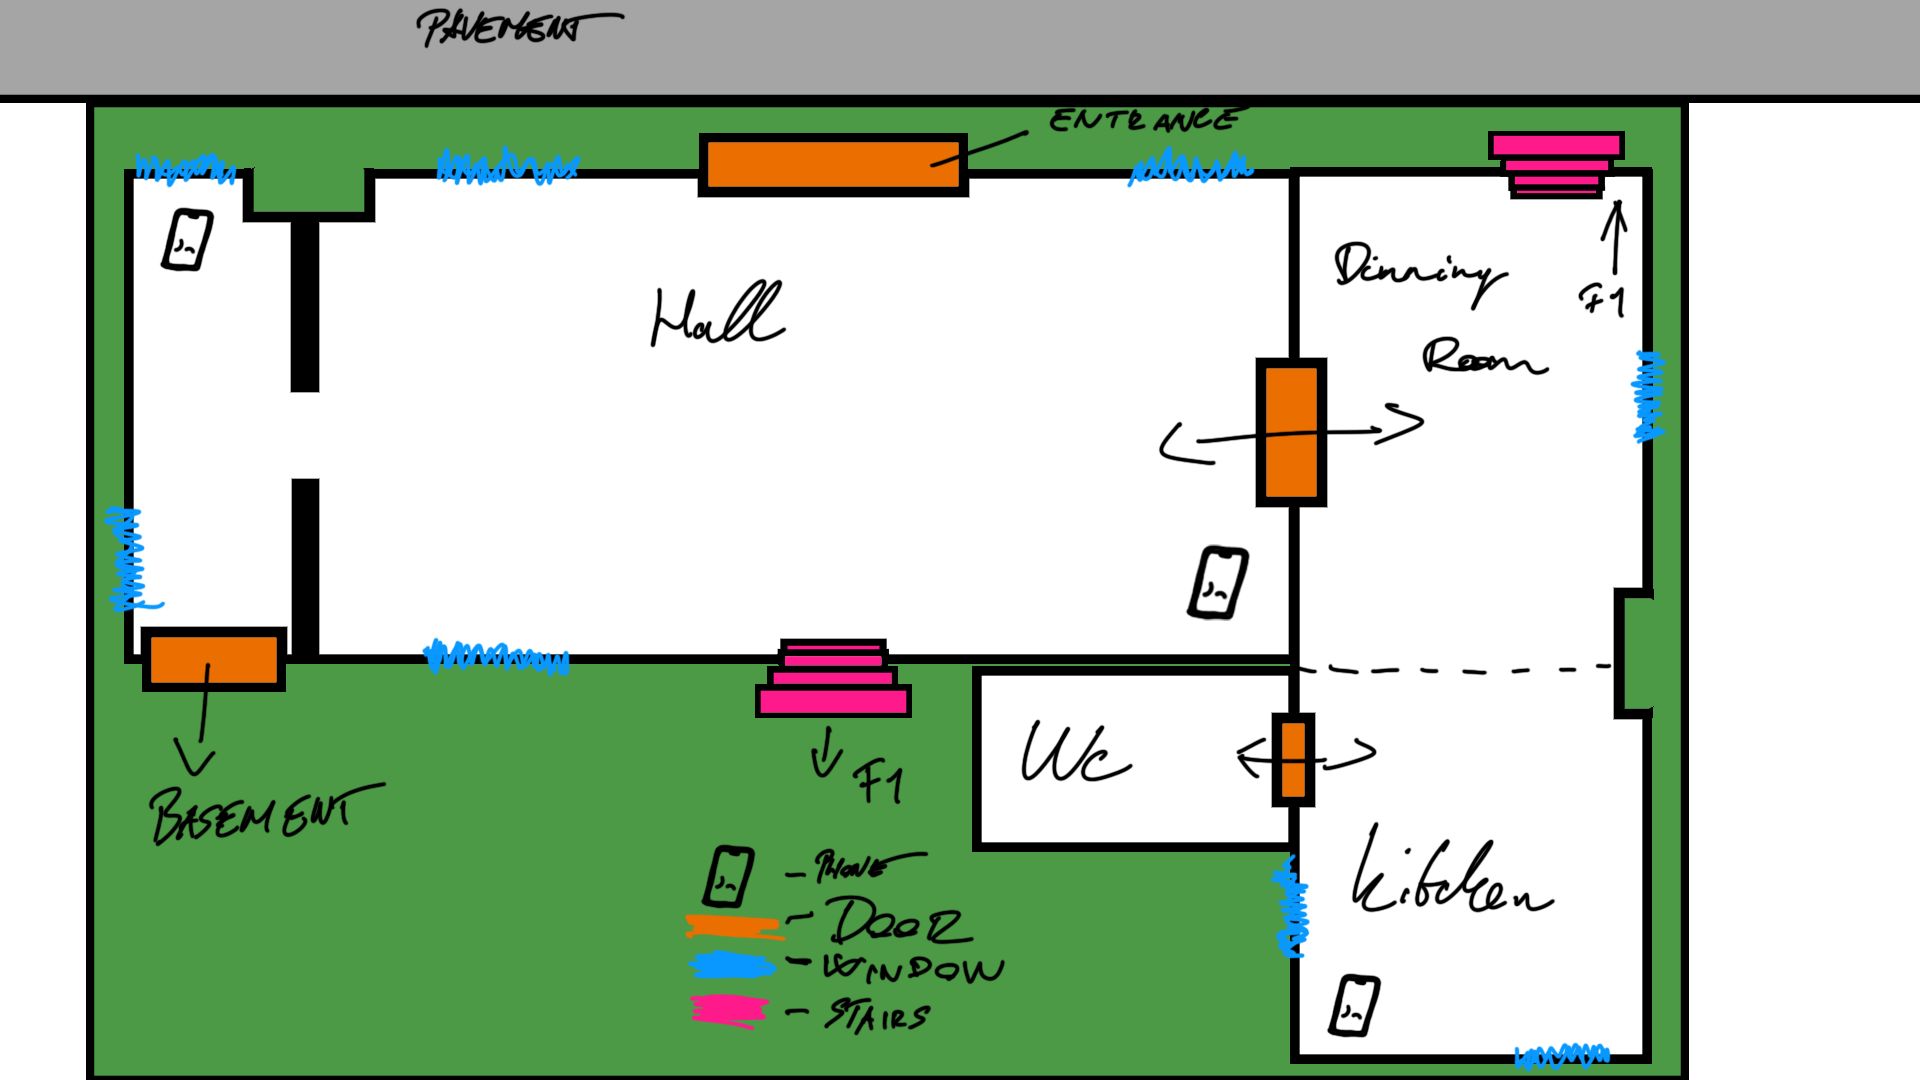 PAVEMENT
ENTRANCE
Hall
Dinning
Room
F1
WC
F1
BASEMENT
Kitchen
- PHONE
- DOOR
- WINDOW
- STAIRS